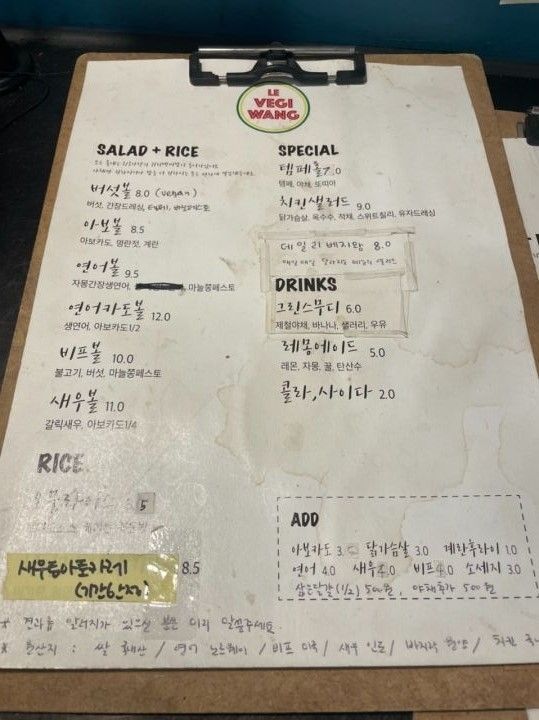 LE
VEGI
WANG
SALAD + RICE
버섯볼 8.0 (vegan)
버섯, 간장드레싱, 템페, 바질페스토
아보볼 8.5
아보카도, 명란젓, 계란
연어볼 9.5
자몽간장생연어, 마늘쫑페스토
연어카도볼 12.0
생연어, 아보카도1/2
비프볼 10.0
불고기, 버섯, 마늘쫑페스토
새우볼 11.0
갈릭새우, 아보카도1/4
RICE
5
새우토마토카레 8.5
(기간한정)
SPECIAL
템페롤 7.0
템페, 야채, 또띠아
치킨샐러드 9.0
닭가슴살, 옥수수, 적채, 스위트칠리, 유자드레싱
데일리베지왕 8.0
매일 매일 달라지는
DRINKS
그린스무디 6.0
제철야채, 바나나, 샐러리, 우유
레몽에이드 5.0
레몬, 자몽, 꿀, 탄산수
콜라,사이다 2.0
ADD
아보카도 3. 닭가슴살 3.0 계란후라이 1.0
연어 4.0 새우 4.0 비프 4.0 소세지 3.0
삶은달걀 (1/2) 500원, 야채추가 500원
* 견과류 알러지가 있으신 분은 미리 말씀주세요.
* 원산지 : 쌀 국내산 / 연어 노르웨이 / 비프 미국 / 새우 인도 / 바지락 / 치킨